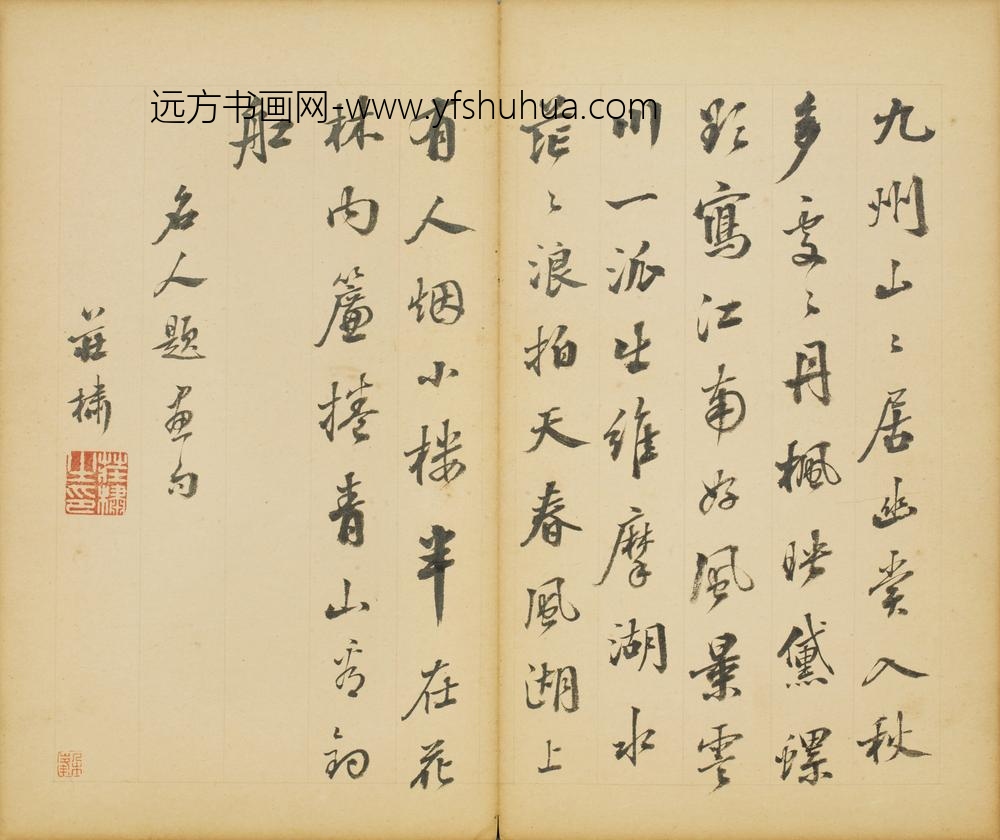 远方书画网-www.yfshuhua.com
九州山〻居幽赏入秋
多处〻丹枫映黛螺
欲写江南好风景云
川一派生维摩湖水
茫〻浪拍天春风湖上
有人烟小楼半在花
林内帘捲青山看钓
船
名人题画句
庄橚